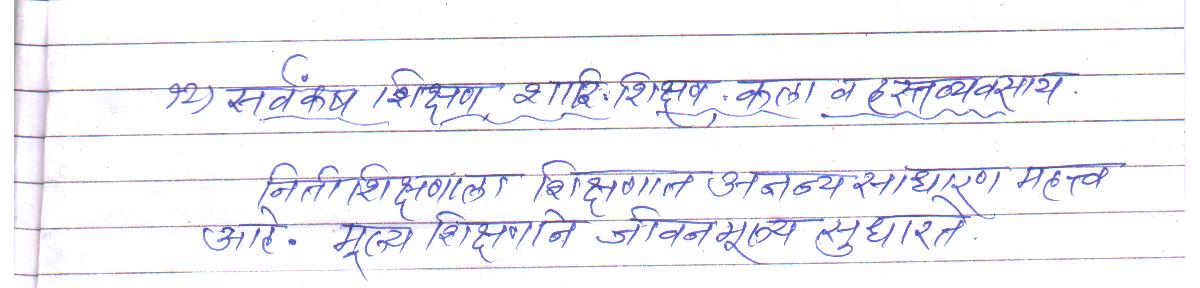 १२) सर्वंकष शिक्षण शारि. शिक्षण. कला व हस्तव्यवसाय.
नितीशिक्षणाला शिक्षणात अनन्यसाधारण महत्त्व
आहे. मूल्य शिक्षणाने जीवनमूल्य सुधारते.